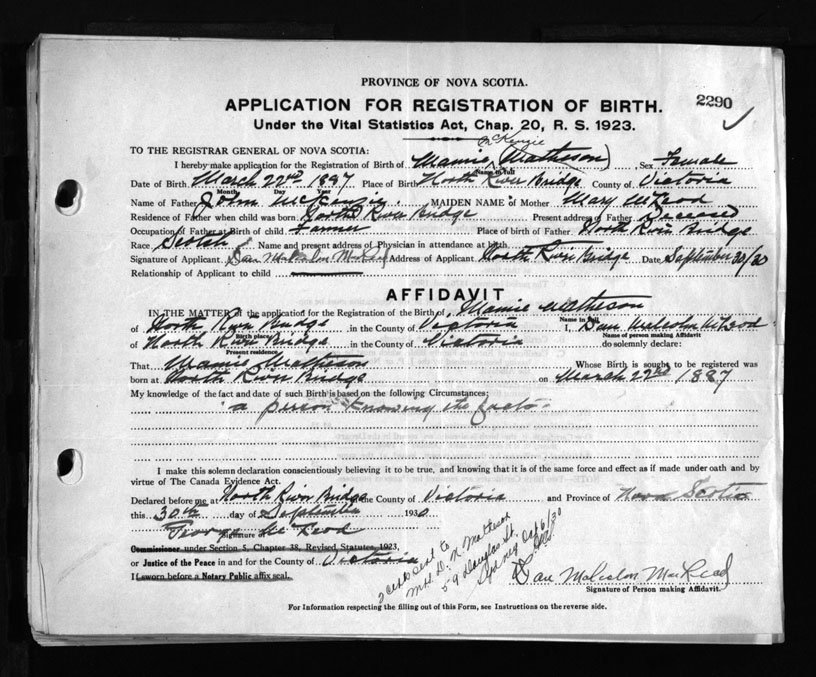 PROVINCE OF NOVA SCOTIA.
2290
APPLICATION FOR REGISTRATION OF BIRTH.
Under the Vital Statistics Act, Chap. 20, R. S. 1923.
McKenzie
TO THE REGISTRAR GENERAL OF NOVA SCOTIA:
I hereby make application for the Registration of Birth of Mamie (Matheson) Sex Female
Name in full
Date of Birth March 22nd 1897 Place of Birth North River Bridge County of Victoria
Month Day Year
Name of Father John McKenzie. MAIDEN NAME of Mother Mary McLeod
Residence of Father when child was born North River Bridge Present address of Father Deceased
Occupation of Father at Birth of child Farmer Place of birth of Father North River Bridge
Race Scotch Name and present address of Physician in attendance at birth
Signature of Applicant Dan Malcolm McLeod Address of Applicant North River Bridge Date September 30/30
Relationship of Applicant to child
AFFIDAVIT
IN THE MATTER of the application for the Registration of the Birth of Mamie Matheson
Name in full
of North River Bridge in the County of Victoria I, Dan Malcolm McLeod
Birth place Name of person making Affidavit
of North River Bridge in the County of Victoria do solemnly declare:
Present residence
That Mamie Matheson Whose Birth is sought to be registered was
born at North River Bridge on March 22nd 1887
My knowledge of the fact and date of such Birth is based on the following Circumstances:
a person knowing the facts
I make this solemn declaration conscientiously believing it to be true, and knowing that it is of the same force and effect as if made under oath and by
virtue of The Canada Evidence Act.
Declared before me at North River Bridge the County of Victoria and Province of Nova Scotia
this 30th day of September 1930
George McLeod
Signature of
Commissioner under Section 5, Chapter 38, Revised Statutes, 1923,
or Justice of the Peace in and for the County of Victoria
If sworn before a Notary Public affix seal.
2 certs sent to
Mrs. D. N. Matheson
59 Douglas St.
Sydney Oct 6/30
Dan Malcolm MacLeod
Signature of Person making Affidavit.
For Information respecting the filling out of this Form, see Instructions on the reverse side.